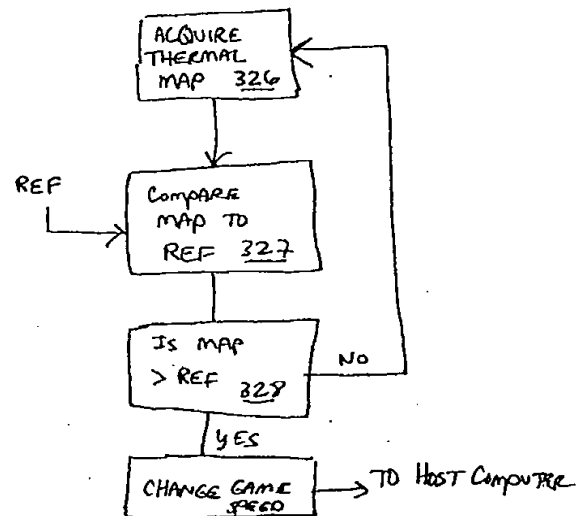 ACQUIRE
THERMAL
MAP 326
REF
COMPARE
MAP TO
REF 327
IS MAP
> REF 328
NO
YES
CHANGE GAME
SPEED
TO HOST COMPUTER